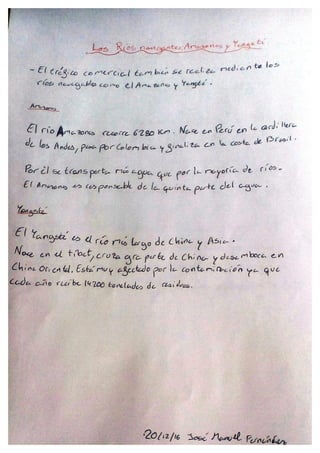 Los Ríos navegantes Amazonas y Yangsté
- El tráfico comercial también se realiza mediante los
ríos navegables como el Amazonas y Yangsté.
Amazonas
El río Amazonas recorre 6280 Km. Nace en Perú en la cordillera
de los Andes, pasa por Colombia y finaliza en la costa de Brasil.
Por él se transporta más agua que por la mayoría de ríos.
El Amazonas es responsable de la quinta parte del agua.
Yangsté
El Yangsté es el río más largo de China y Asia.
Nace en el tíbet, cruza gra parte de China y desembora en
China Oriental. Está muy afectado por la contaminación ya que
cada año recibe 14200 toneladas de residuos.
20/12/16 José Manuel Fernández